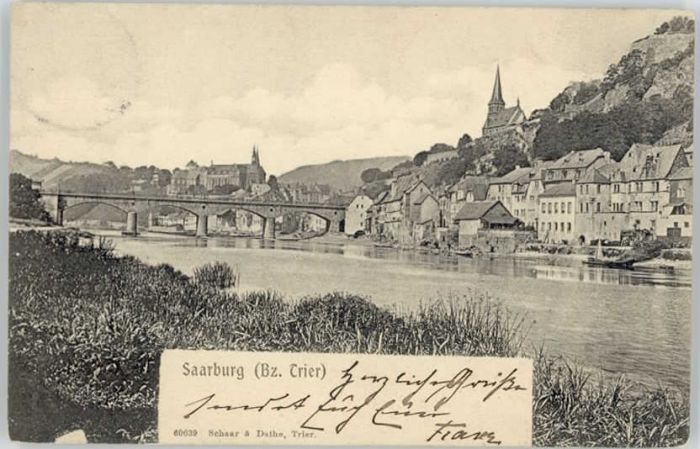 Saarburg (Bz. Trier)
Herzliche Grüße
sendet Euch Euer
Franz
60639 Schaar & Dathe, Trier.